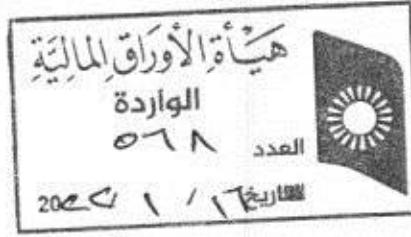 هيأة الأوراق المالية
الواردة
العدد ٥٦٨
التاريخ ١٦ / ١ / 20٢٢